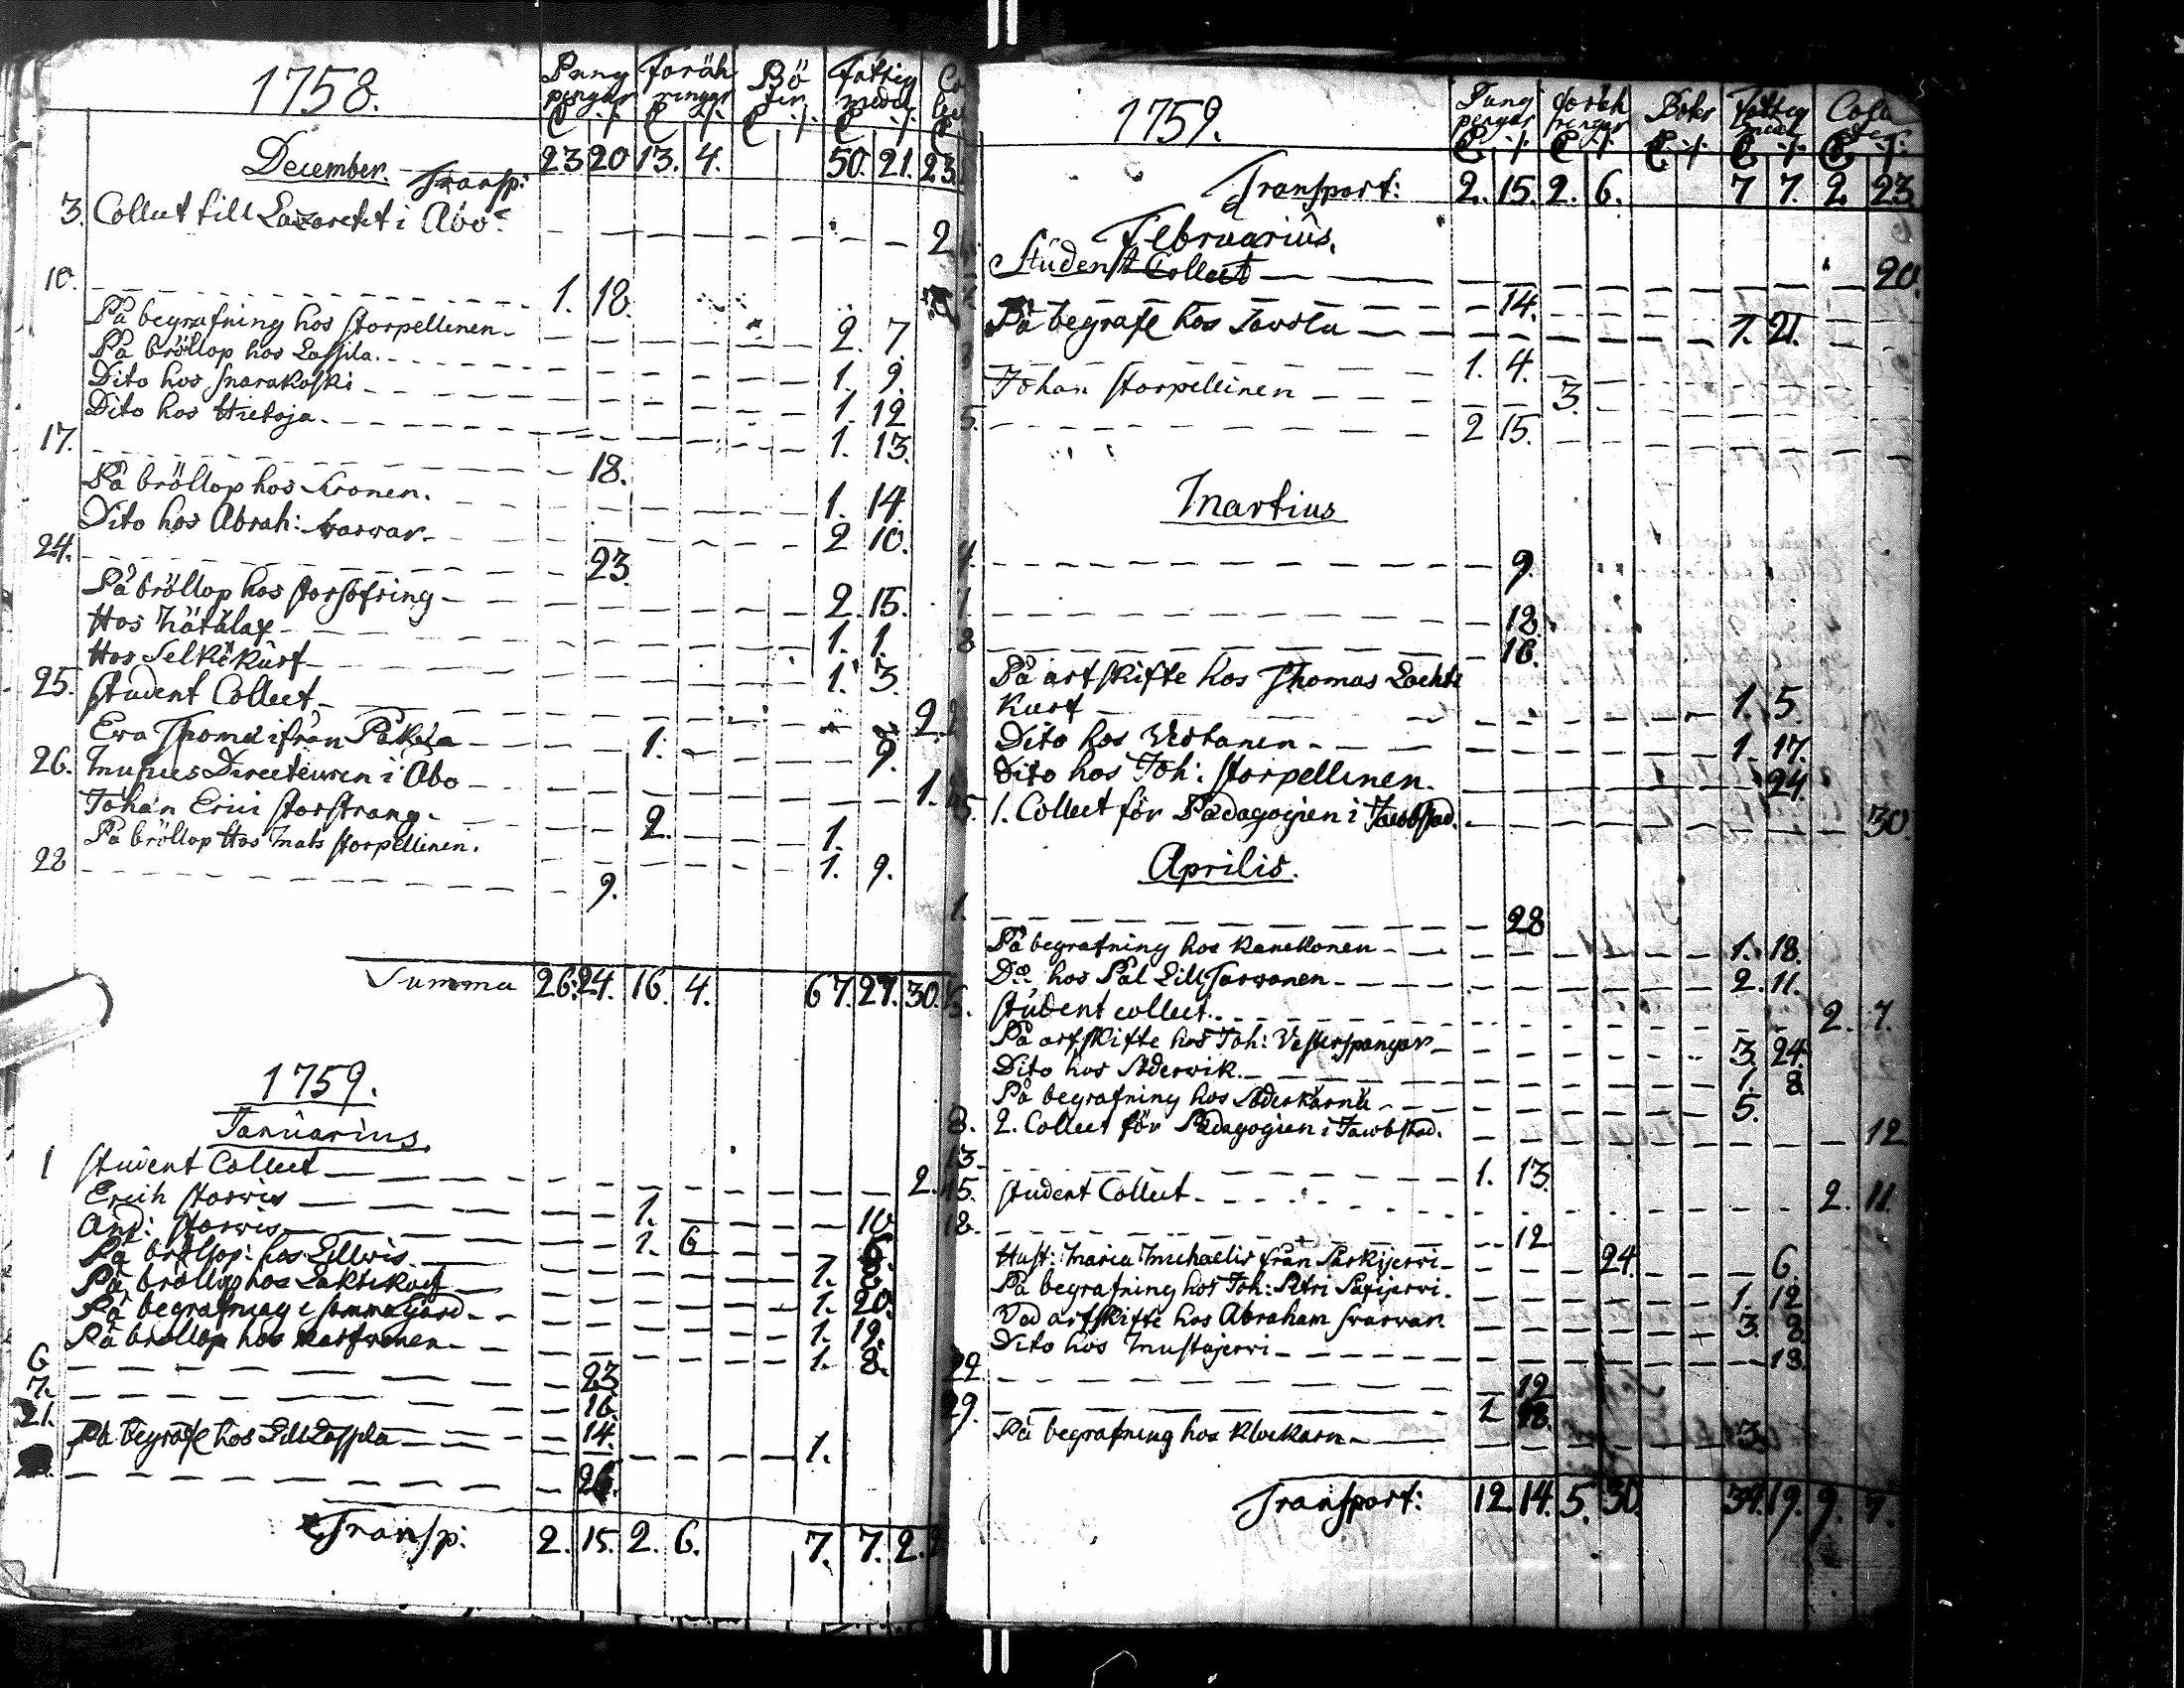 1758.
Pung pengar | Foräh ringar | Bö ter | Fattig medel
December. Transp: 23 20 13. 4. 50. 21. 23.
3. Collect till Lazarettet i Åbo 2
10. 1. 18.
På begrafning hos Storpellinen 2. 7.
På bröllop hos Lassila. 1. 9.
Dito hos Snarakoski 1. 12
Dito hos Hietoja. 1. 13.
17. 18.
På bröllop hos Kronen. 1. 14.
Dito hos Abrah: Svarvar. 2 10.
24. 23.
På bröllop hos 2. 15.
Hos 1. 1.
Hos 1. 3.
25. Student Collect 2
Eva Thomæ ifrån 1. 9.
26. Musices Directeuren i Åbo 1.
Johan Erici Storstrang. 2. 1.
På bröllop Hos Mats Storpellinen. 1. 9.
28 9.
Summa 26. 24. 16. 4. 67. 27. 30.
1759.
Januarius.
1 Student Collect 2.
Erich Storwis 1. 10
And: Storwis 1. 6 6.
På bröllop: hos Lillwis. 1. 8.
På bröllop hos 1. 20.
På begrafning i samma gård 1. 19.
På bröllop hos 1. 8.
6 23
7. 16.
21. 14.
På begrafn hos Lill Lassila 1.
26.
Transp: 2. 15. 2. 6. 7. 7. 2.
1759.
Pung pengar | Foräh ringar | Böter | Fattig medel | Collecter
Transport: 2. 15. 2. 6. 7 7. 2. 23.
Februarius.
Student Collect 20.
14.
På begrafn hos 1. 21.
1. 4.
Johan Storpellinen 3.
2 15.
Martius
9.
18.
16.
På arfskifte hos Thomas Lachti
kurf 1. 5.
Dito hos Vestanen 1. 17.
Dito hos Joh: Storpellinen. 24.
1. Collect för Pædagogien i Jacobstad. 30.
Aprilis.
1. 28
På begrafning hos Kanckonen 1. 18.
Do: hos Pål Lill Jarwanen 2. 11.
Student collect. 2. 7.
På arfskifte hos Joh: Vesterspangar 3. 24.
Dito hos Söderwik. 1. 8
På begrafning hos Söderkärnä 5.
8. 2. Collect för Pædagogien i Jacobstad. 12
13. 1. 13.
15. Student Collect 2. 11.
18. 12
Hust: Maria Michaelis från 24. 6.
På begrafning hos Joh: Petri 1. 12
Vid arfskifte hos Abraham Svarvar. 3. 8.
Dito hos Mustajervi 18.
22. 12
29. 1 18.
På begrafning hos Klockarn 3.
Transport: 12 14. 5. 30. 34. 19. 9. 7.